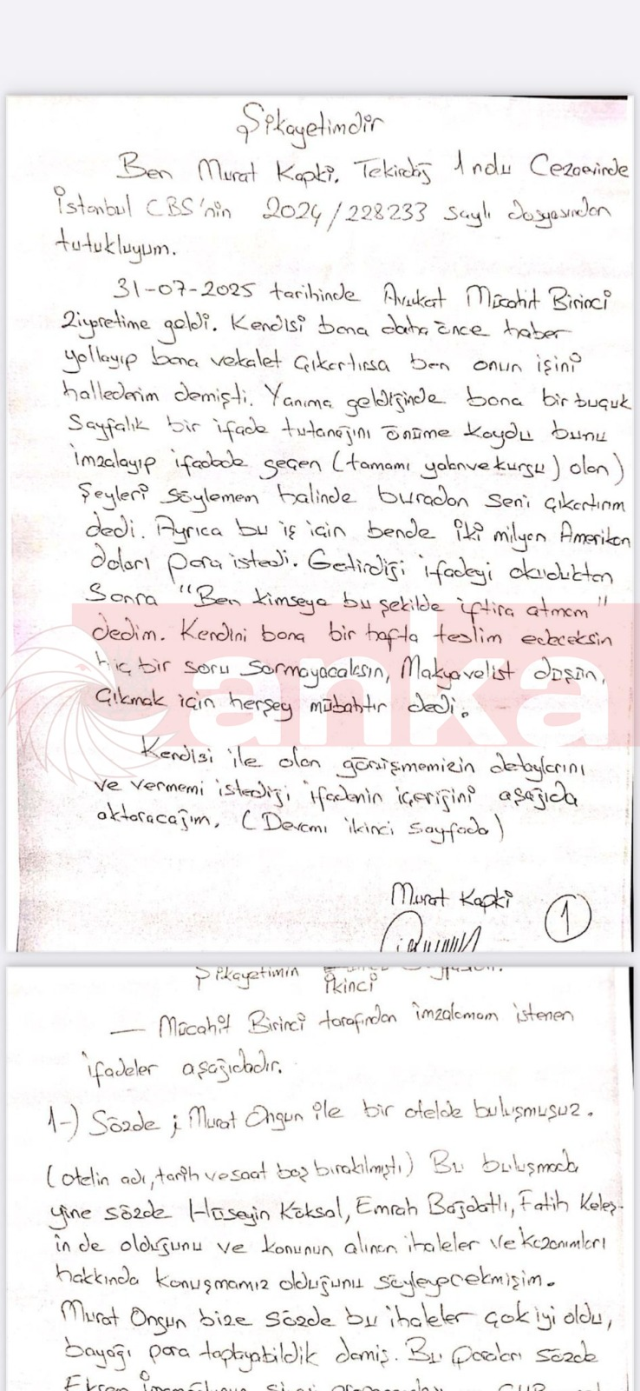 Şikayetimdir
Ben Murat Kapki. Tekirdağ 1 ndu Cezaevinde
İstanbul CBS'nin 2024/228233 sayılı dosyasından
tutukluyum.
31-07-2025 tarihinde Avukat Mücahit Birinci
ziyaretime geldi. Kendisi bana daha önce haber
yollayıp bana vekalet çıkartırsa ben onun işini
hallederim demişti. Yanıma geldiğinde bana bir buçuk
sayfalık bir ifade tutanağını önüme koydu bunu
imzalayıp ifadede geçen (tamamı yalan ve kurgu) olan)
şeyleri söylemem halinde buradan seni çıkartırım
dedi. Ayrıca bu iş için bende iki milyon Amerikan
doları para istedi. Getirdiği ifadeyi okuduktan
sonra "Ben kimseye bu şekilde iftira atmam"
dedim. Kendini bana bir hafta teslim edeceksin
hiç bir soru sormayacaksın, Makyavelist düşün,
çıkmak için herşey mübahtır dedi.
anka
Kendisi ile olan görüşmemizin detaylarını
ve vermemi istediği ifadenin içeriğini aşağıda
aktaracağım. (Devamı ikinci sayfada)
Murat Kapki
1
Şikayetimin İkinci
— Mücahit Birinci tarafından imzalamam istenen
ifadeler aşağıdadır.
1-) Sözde ; Murat Ongun ile bir otelde buluşmuşuz.
(otelin adı, tarih ve saat boş bırakılmıştı) Bu buluşmada
yine sözde Hüseyin Köksal, Emrah Bağdatlı, Fatih Keleş-
in de olduğunu ve konunun alınan ihaleler ve kazanımları
hakkında konuşmamız olduğunu söyleyecekmişim.
Murat Ongun bize sözde bu ihaleler çok iyi oldu,
bayağı para toplayabildik demiş. Bu paraları sözde
Ekrem